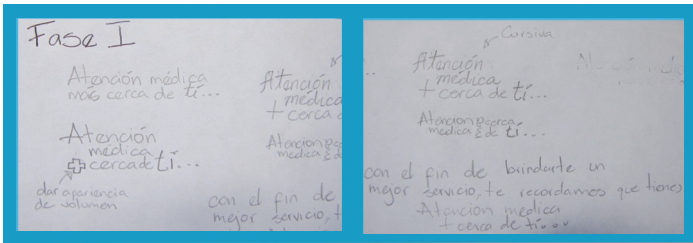 Fase I
Atención médica
más cerca de tí...
Atención
médica
cerca de tí...
dar apariencia
de volumen
Atención
médica
+ cerca
Atancion
medica
con el fin de
mejor servicio,
Cursiva
Atención
médica
+ cerca de tí...
Atancion
medica
de tí...
con el fin de brindarte un
mejor servicio, te recordamos que tienes
Atancion médica
+ cerca de tí...